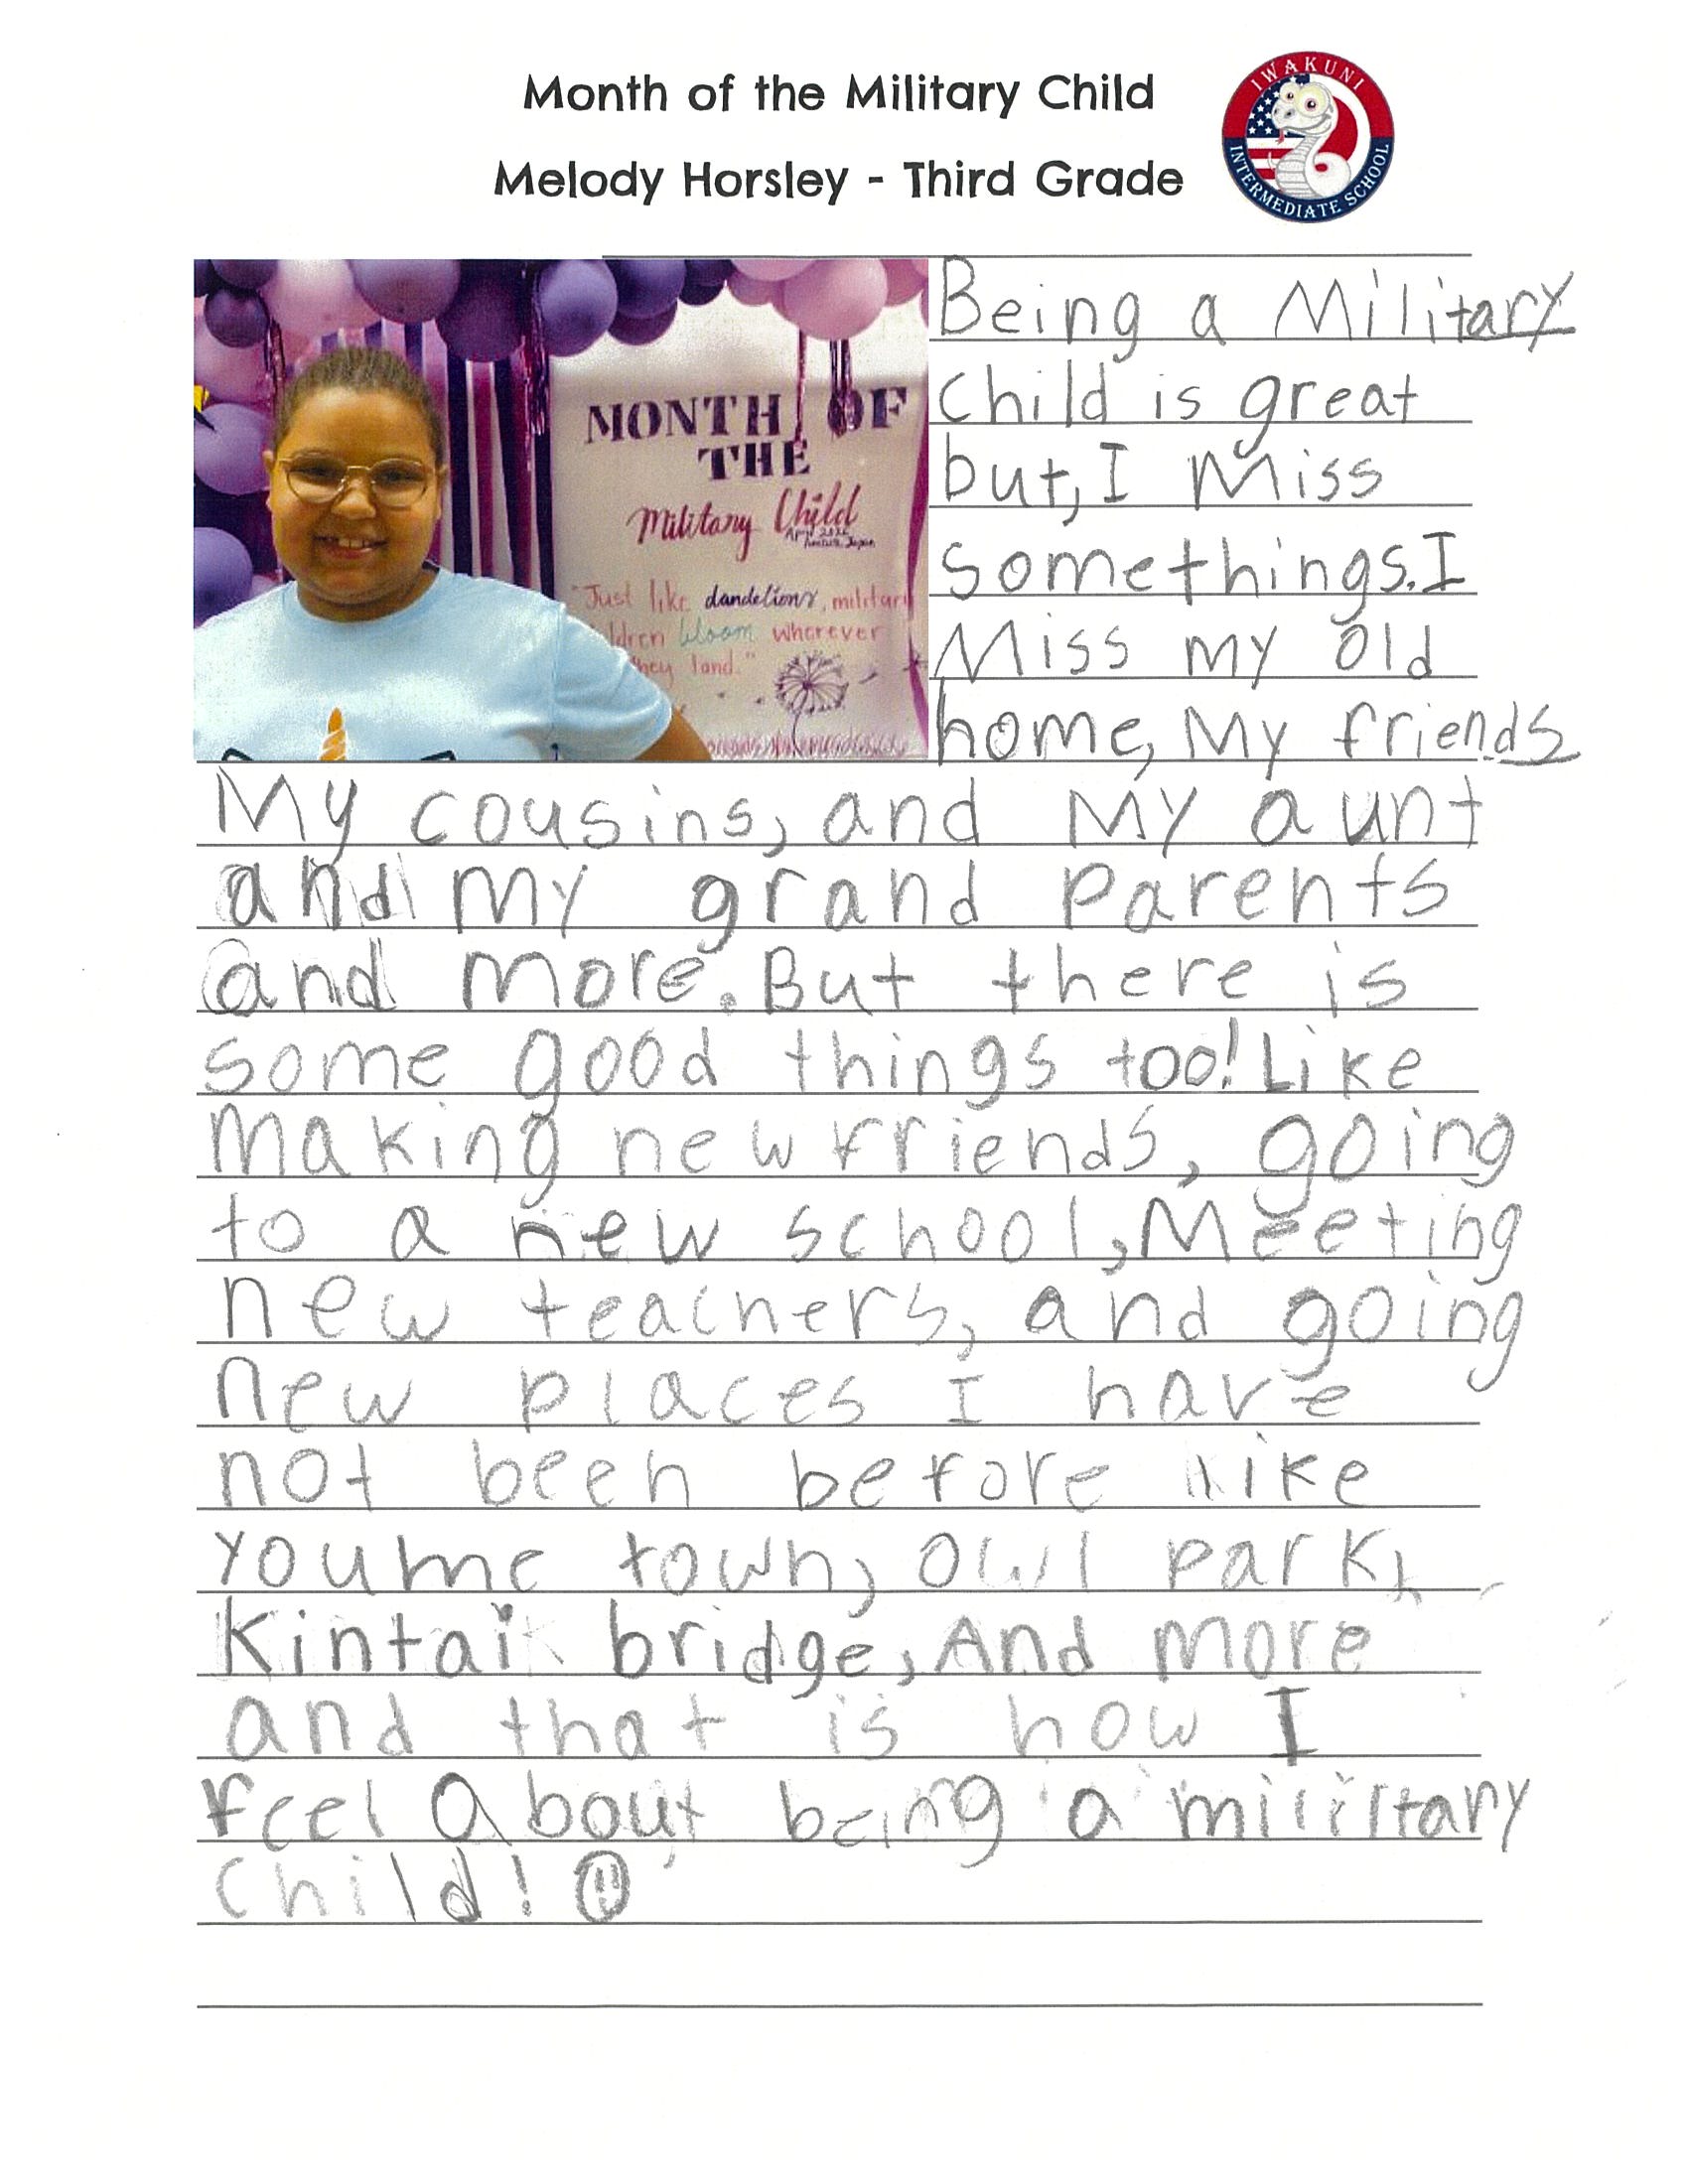 Month of the Military Child
Melody Horsley - Third Grade
IWAKUNI
INTERMEDIATE SCHOOL
MONTH OF
THE
Military Child
April
Japan
"Just like dandelions, military
ldren bloom wherever
they land."
Being a Military
Child is great
but, I Miss
somethings. I
Miss my old
home, My friends
My cousins, and My aunt
and My grand parents
and more. But there is
some good things too! Like
Making new friends, going
to a new school, Meeting
new teachers, and going
new places I have
not been before like
youme town, owl park,
Kintai bridge, And more
and that is how I
feel About being a military
Child!